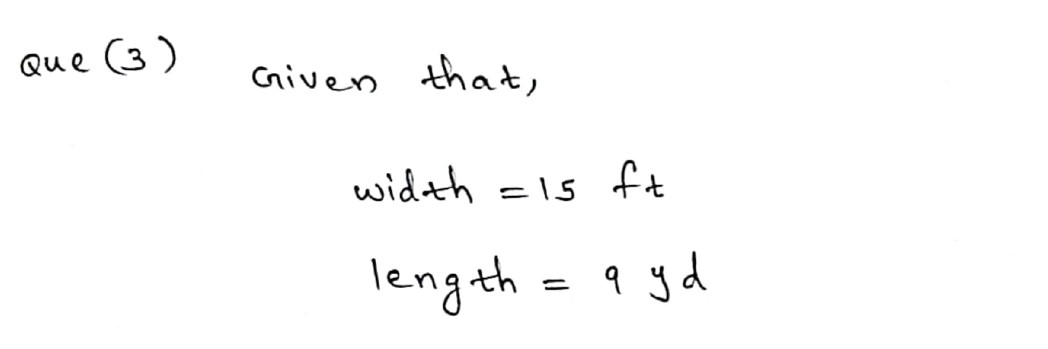 Que (3) Given that,
width = 15 ft
length = 9 yd